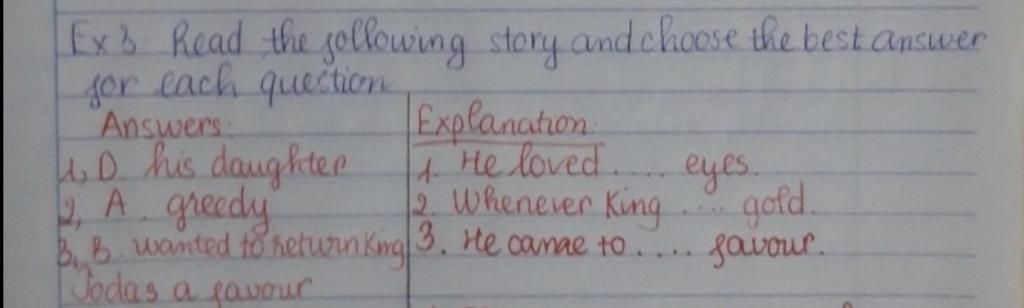 Ex 3 Read the following story and choose the best answer
for each question
Answers:
Explanation:
1, D. his daughter
1. He loved ..... eyes.
2, A. greedy
2. Whenever King ..... gold.
3, B. wanted to return King
3. He camae to ..... favour.
Jodas a favour